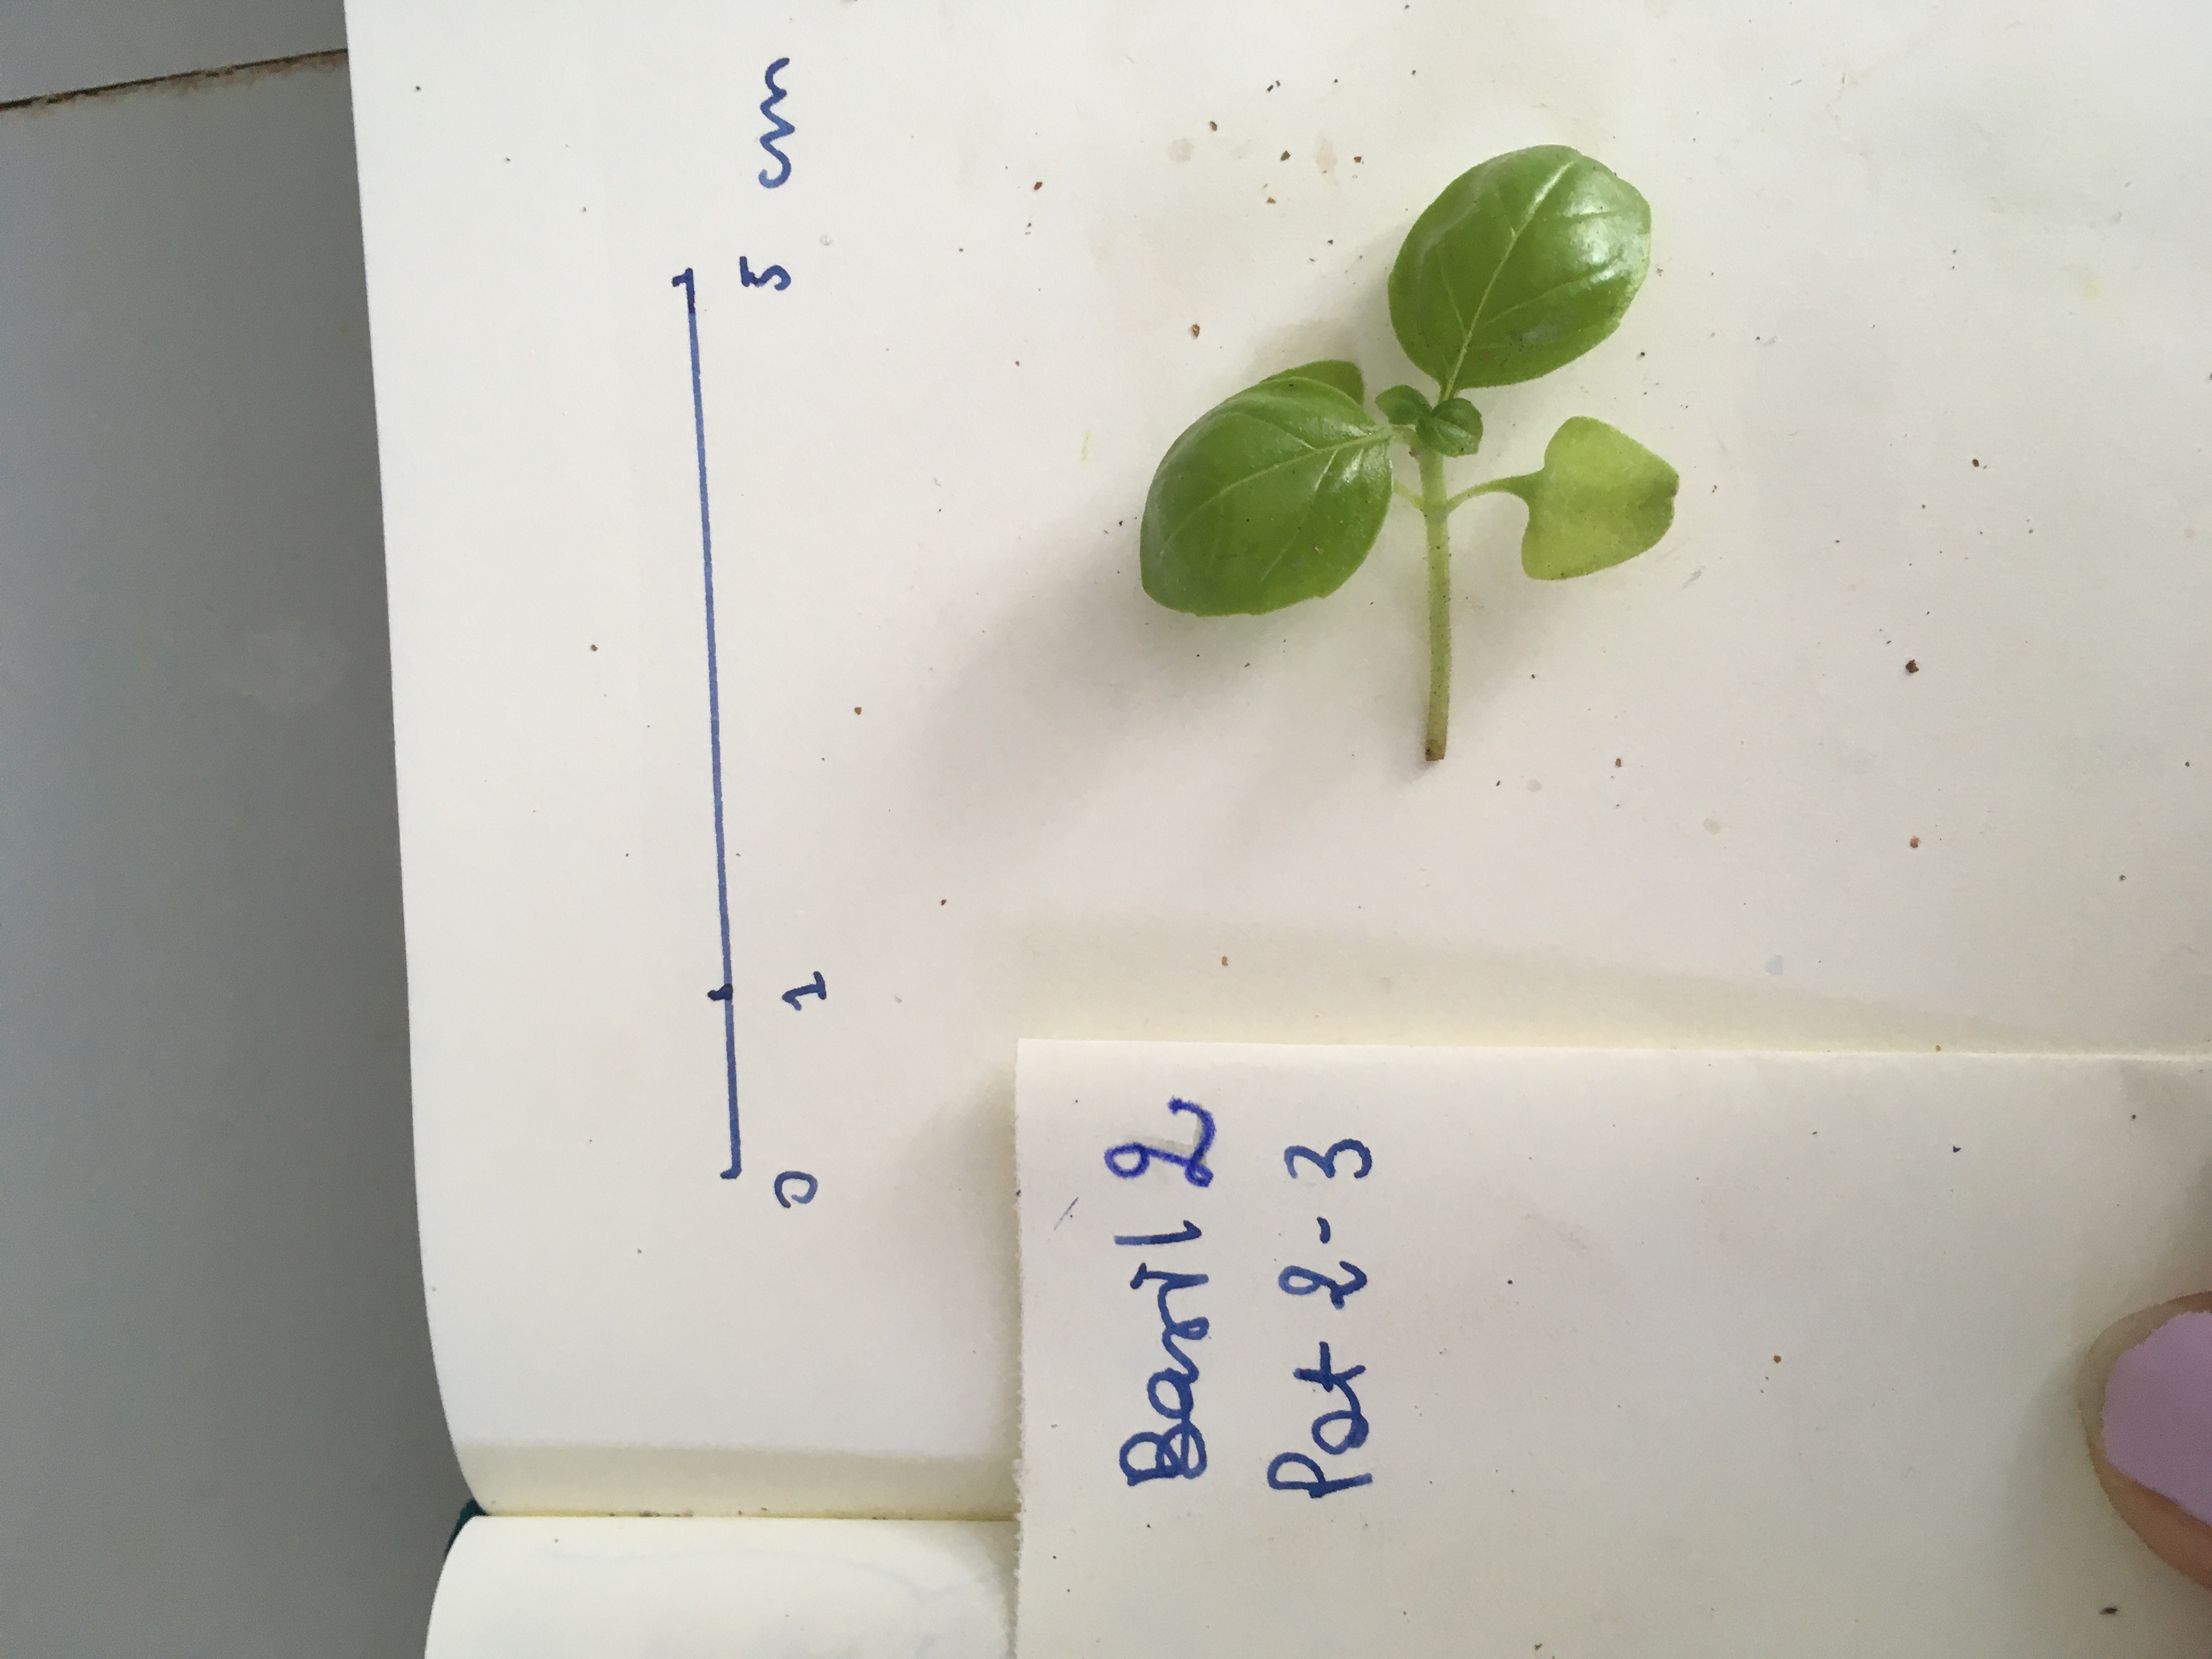 0 1 5 cm
Basil 2
Pot 2-3